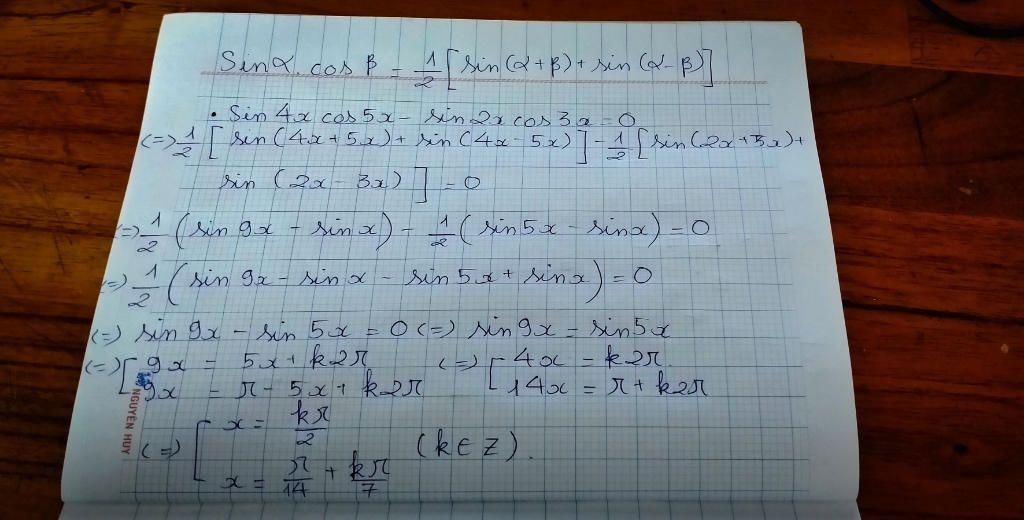 Sinα. cos β = 1/2 [sin(α+β)+ sin(α-β)]
• Sin 4x cos 5x - sin 2x cos 3x = 0
(=) 1/2 [sin(4x+5x)+ sin(4x-5x)] - 1/2 [sin(2x+3x)+
sin (2x-3x)] = 0
(=) 1/2 (sin 9x - sin x) - 1/2 (sin 5x - sin x) = 0
(=) 1/2 (sin 9x - sin x - sin 5x + sin x) = 0
(=) sin 9x - sin 5x = 0 (=) sin 9x = sin 5x
(=) [ 9x = 5x + k2π (=) [ 4x = k2π
9x = π - 5x + k2π 14x = π + k2π
(=) [ x = kπ/2
x = π/14 + kπ/7 (k ∈ Z).
NGUYÊN HUY